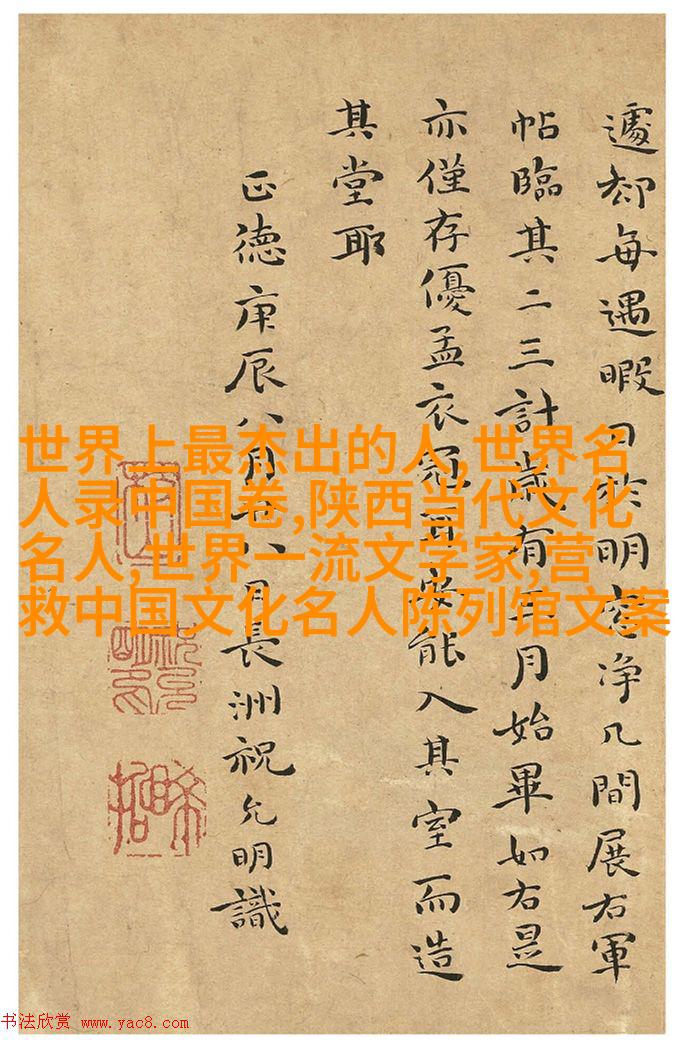 遽却每遇暇日於明窓净几間展右軍
帖臨其二三計歲有年月始畢如右是
亦僅存優孟衣冠耳安能入其室而造
其堂耶
正德庚辰八月廿八日長洲祝允明識
世界上最杰出的人,世界名
人录中国卷,陕西当代文化
名人,世界一流文学家,营
救中国文化名人陈列馆文案
书法欣赏 www.yac8.com